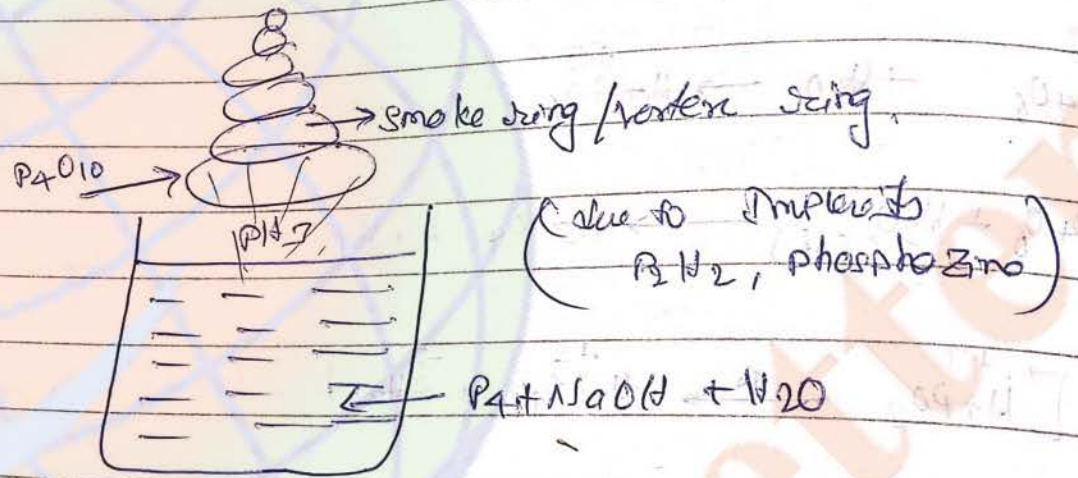 → smoke ring / vortex ring.
P4O10 →
PH3
(due to Impurity
P2H2, phosphozino)
P4 + NaOH + H2O